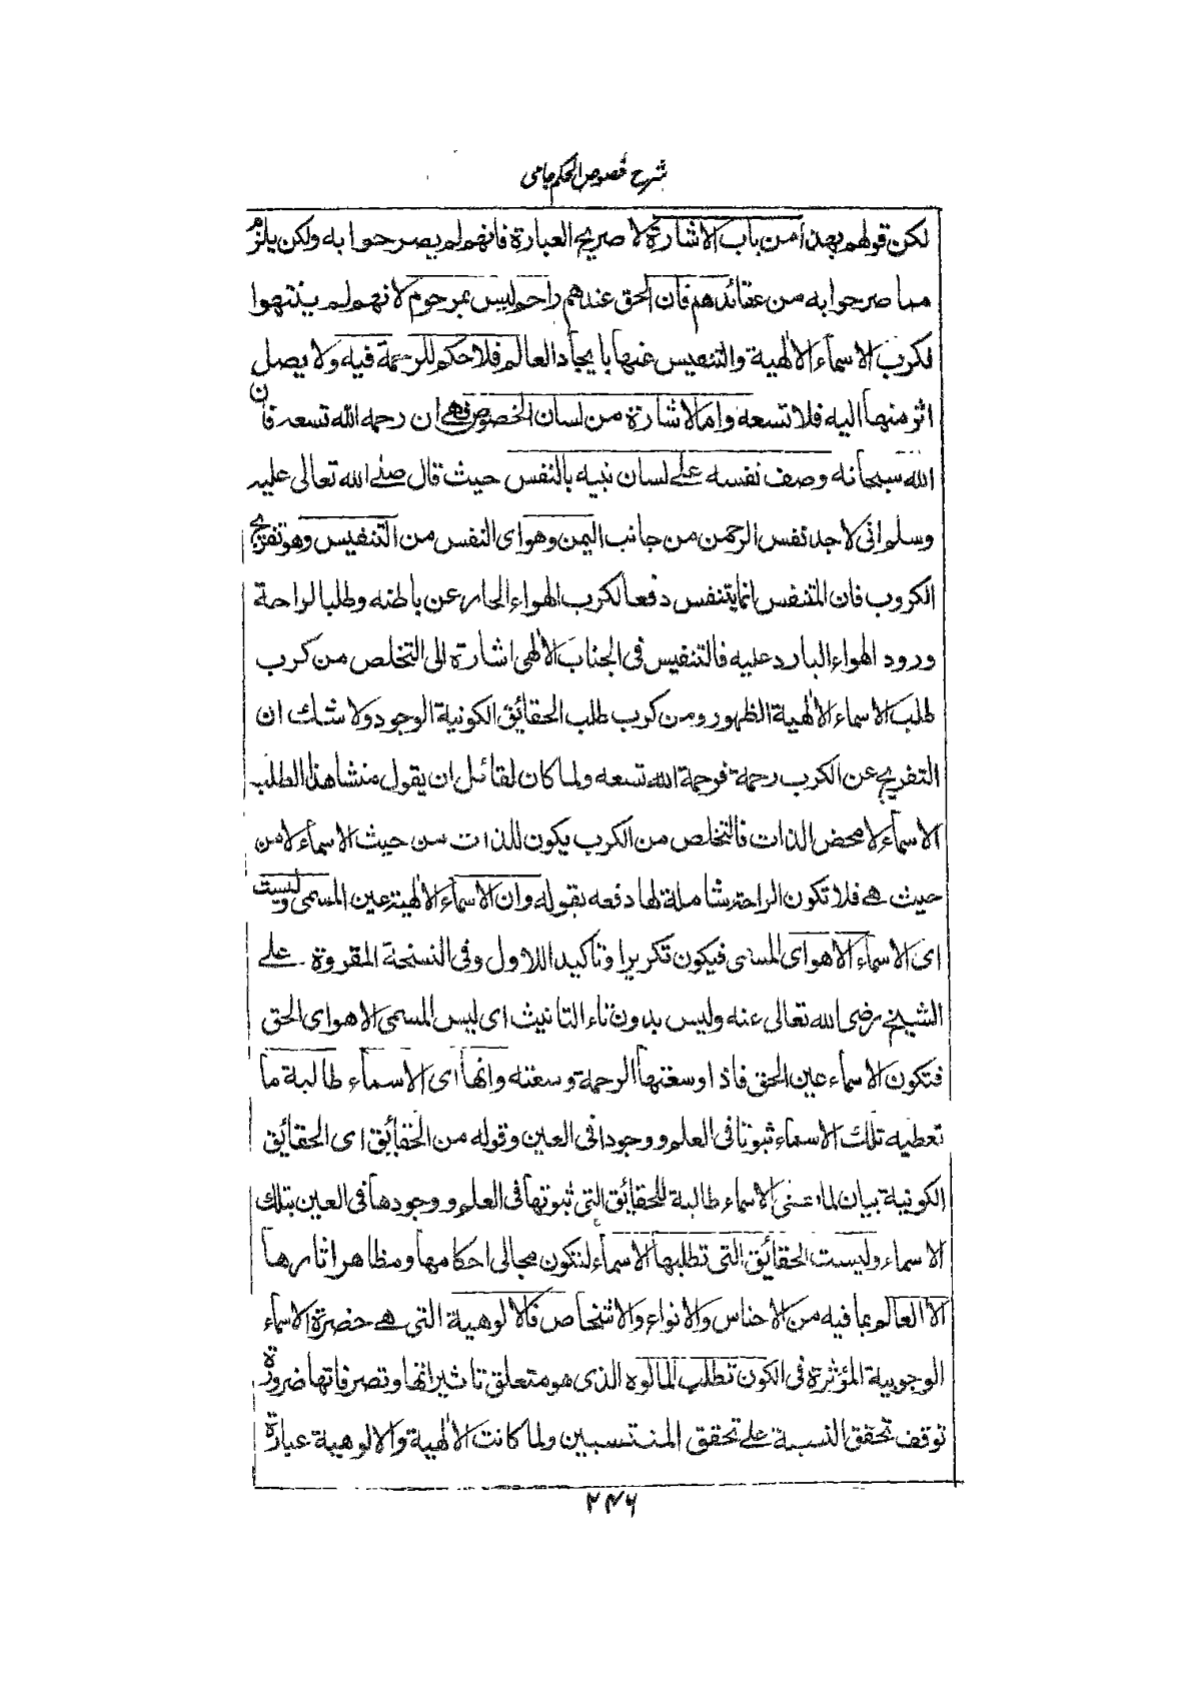 شرح فصوص الحكم جامى
لكن قولهم بهذا من باب الاشارة لا صريح العبارة فانهم لم يصرحوا به ولكن يلزم
مما صرحوا به من عقائدهم فان الحق عندهم راحم ليس بمرحوم لانهم لم ينتبهوا
لكرب الاسمآء الالٰهية والتنفيس عنها بايجاد العالم فلا حكم للرحمة فيه ولا يصل
اثر منها اليه فلا تسعه واما الاشارة من لسان الخصوص فهى ان رحمه الله تسعه فان
الله سبحانه وصف نفسه على لسان نبيه بالنفس حيث قال صلى الله تعالى عليه
وسلم انى لاجد نفس الرحمن من جانب اليمن وهو اى النفس من التنفيس وهو تفريج
الكروب فان المتنفس انما يتنفس دفعا لكرب الهواء الحار عن باطنه وطلبا لراحة
ورود الهواء البارد عليه فالتنفيس فى الجناب الالٰهى اشارة الى التخلص من كرب
طلب الاسماء الالٰهية الظهور ومن كرب طلب الحقائق الكونية الوجود ولا شك ان
التفريج عن الكرب رحمة فرحمة الله تسعه ولما كان لقائل ان يقول منشا هذا الطلب
الاسمآء لا محض الذات فالتخلص من الكرب يكون للذات من حيث الاسمآء لا من
حيث هى فلا تكون الراحة شاملة لها دفعه بقوله وان الاسمآء الالٰهية عين المسمى وليست
اى الاسمآء الا هو اى المسمى فيكون تكريرا وتاكيدا للاول وفى النسخة المقروة على
الشيخ رضى الله تعالى عنه وليس بدون تاء التانيث اى ليس المسمى الا هو اى الحق
فتكون الاسماء عين الحق فاذا وسعتها الرحمة وسعته وانها اى الاسماء طالبة ما
تعطيه تلك الاسماء ثبوتا فى العلم ووجودا فى العين وقوله من الحقائق اى الحقائق
الكونية بيان لما عنى الاسماء طالبة للحقائق التى ثبوتها فى العلم ووجودها فى العين بتلك
الاسماء وليست الحقائق التى تطلبها الاسمآء لتكون مجالى احكامها ومظاهر اثارها
الا العالم بما فيه من الاجناس والانواع والاشخاص فالالوهية التى هى حضرة الاسمآء
الوجوبية المؤثرة فى الكون تطلب المالوه الذى هو متعلق تاثيراتها وتصرفاتها ضرورة
توقف تحقق النسبة على تحقق المنتسبين ولما كانت الالٰهية والالوهية عبارة
۲۴۶